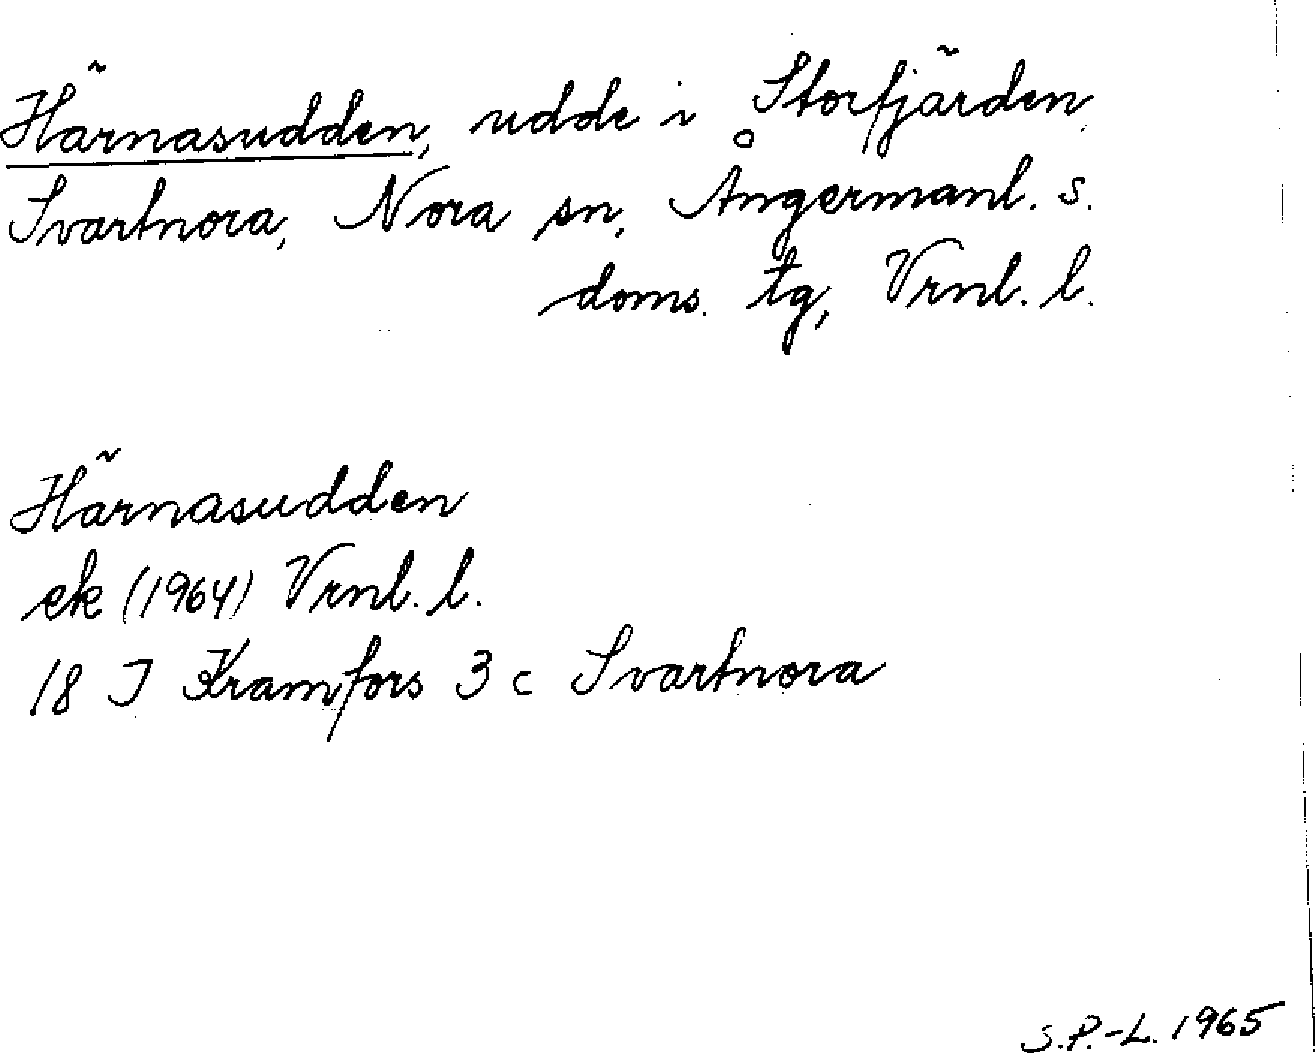 Härnasudden, udde i Storfjärden,
Svartnora, Nora sn, Ångermanl. s.
doms. tg, Vrnl. l.
Härnasudden
ek (1964) Vrnl. l.
18 J Kramfors 3 c Svartnora
S.P.-L. 1965